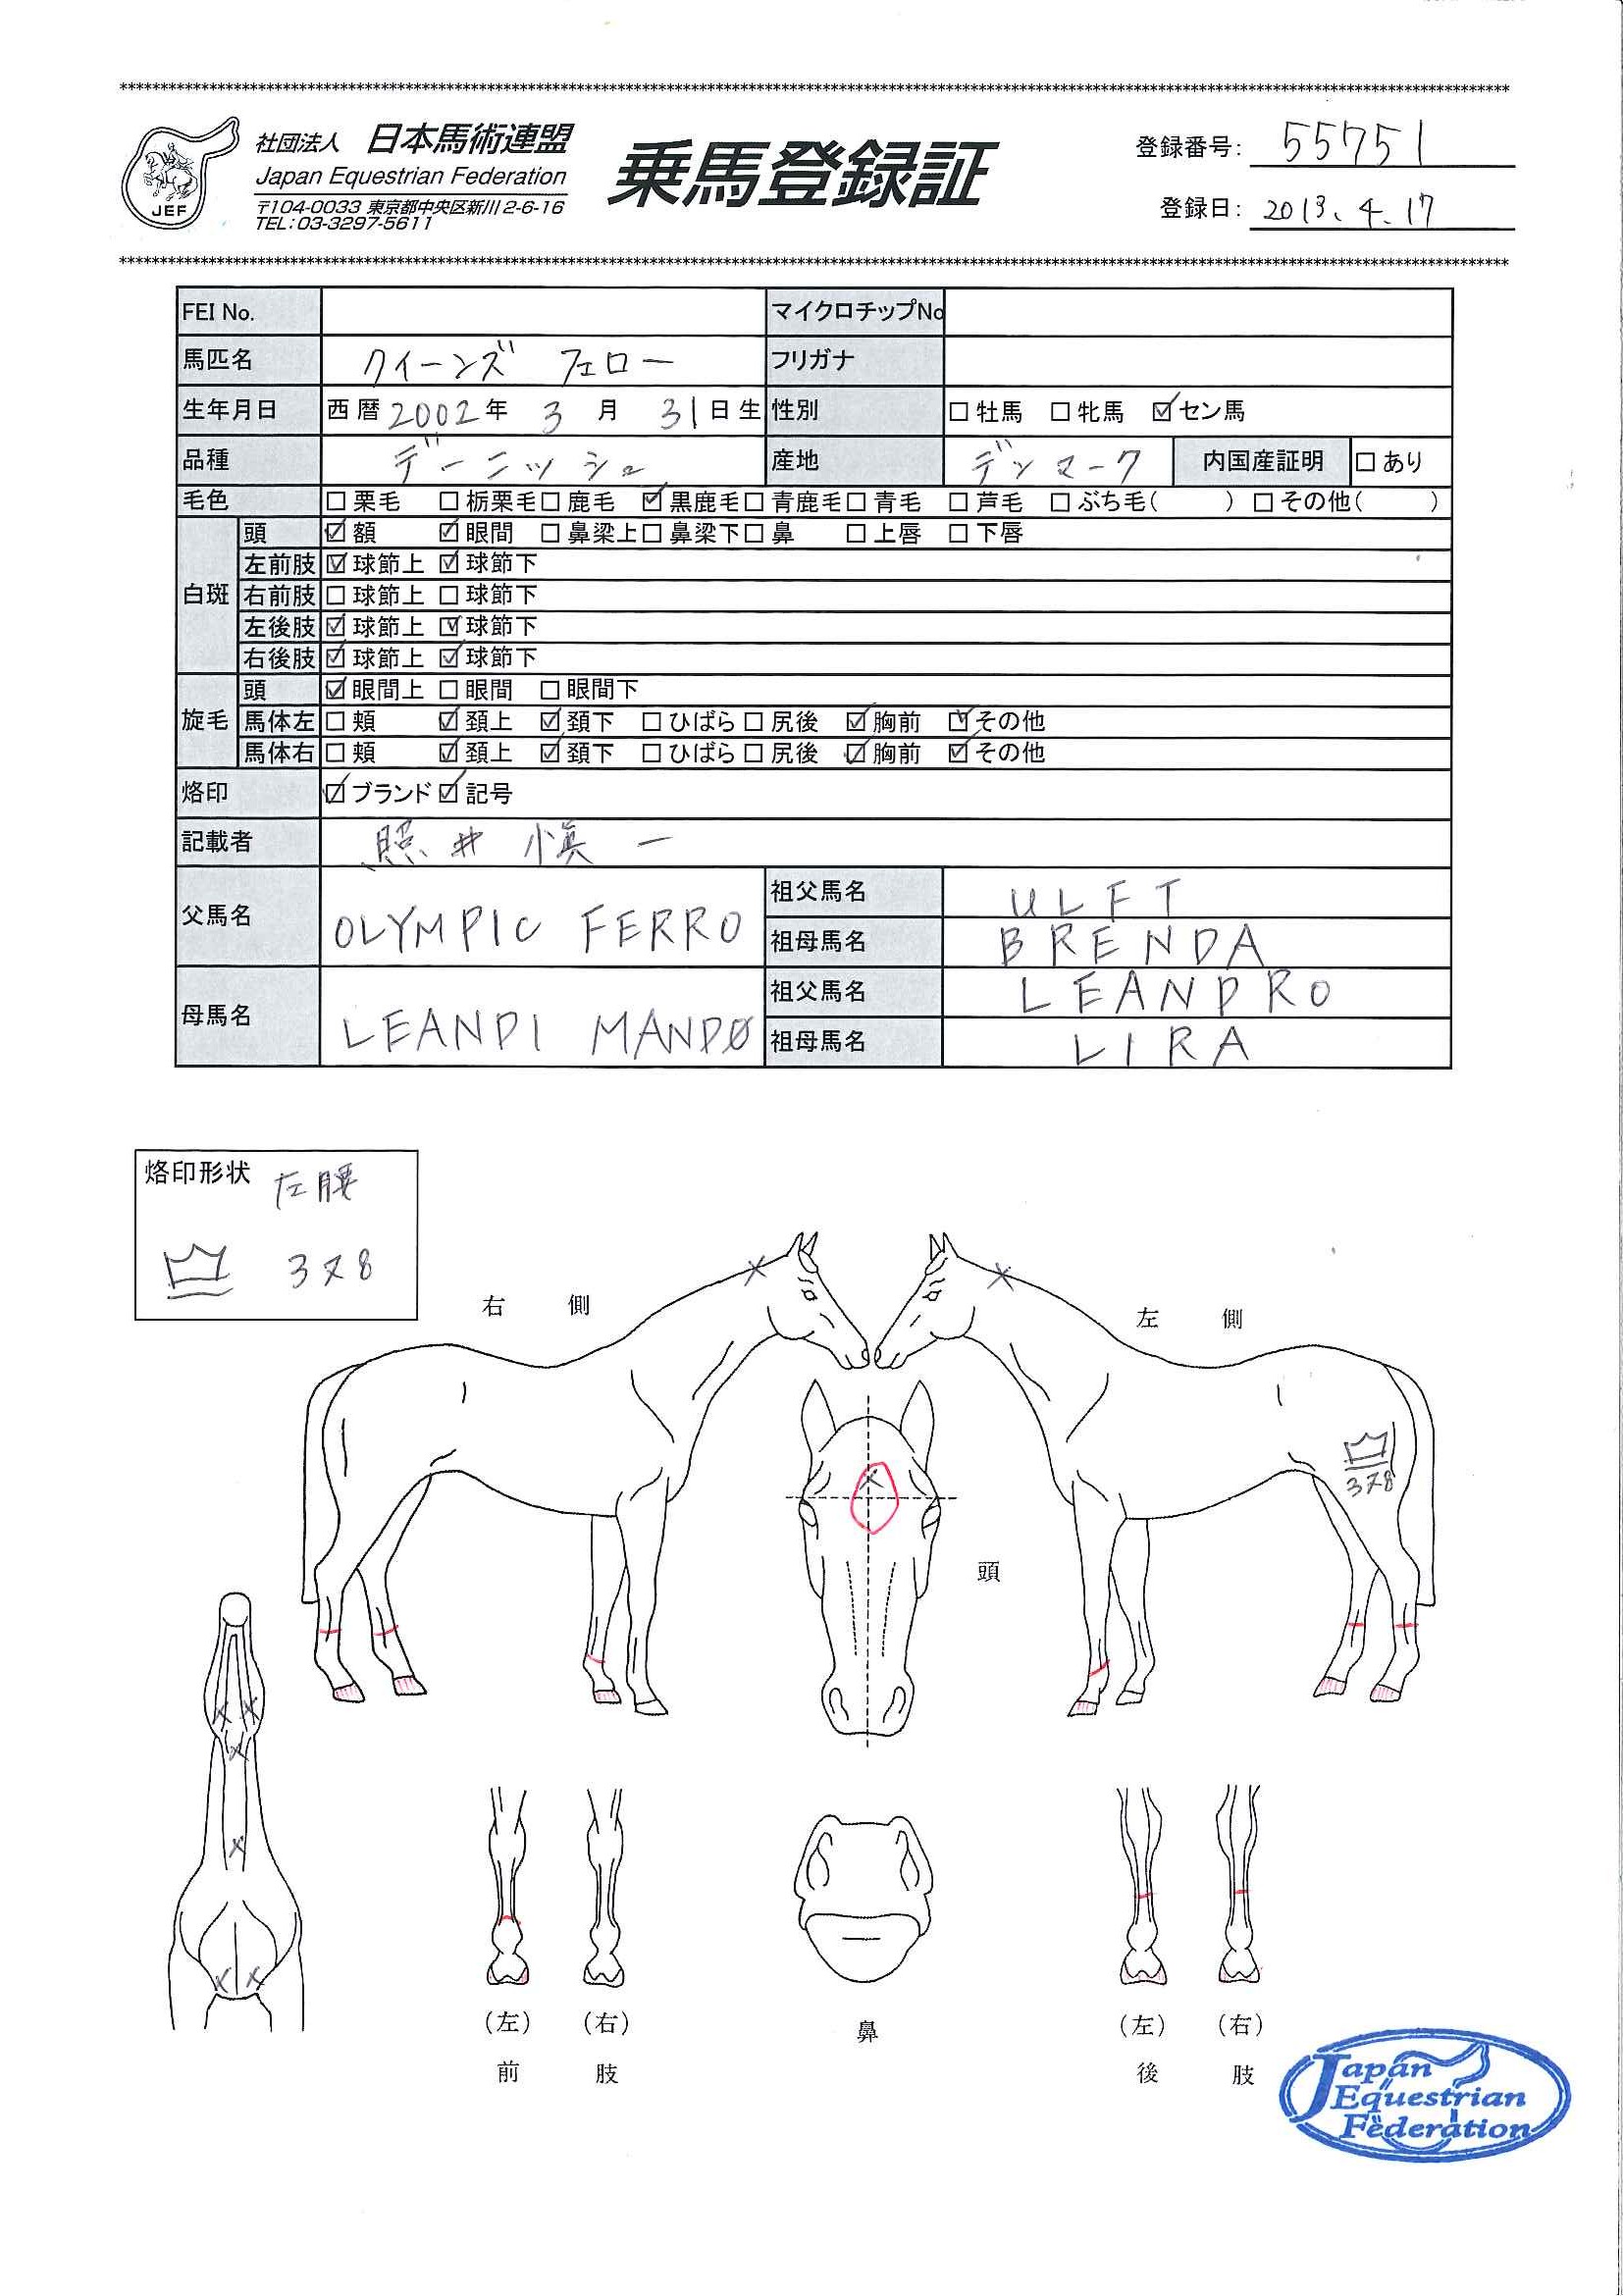 社団法人 日本馬術連盟
Japan Equestrian Federation
〒104-0033 東京都中央区新川2-6-16
TEL:03-3297-5611
JEF
乗馬登録証
登録番号: 55751
登録日: 2013.4.17
FEI No. マイクロチップNo
馬匹名 クイーンズ フェロー フリガナ
生年月日 西暦 2002 年 3 月 31 日生 性別 □牡馬 □牝馬 ☑セン馬
品種 デーニッシュ 産地 デンマーク 内国産証明 □あり
毛色 □栗毛 □栃栗毛 □鹿毛 ☑黒鹿毛 □青鹿毛 □青毛 □芦毛 □ぶち毛( ) □その他( )
白斑 頭 ☑額 ☑眼間 □鼻梁上 □鼻梁下 □鼻 □上唇 □下唇
左前肢 ☑球節上 ☑球節下
右前肢 □球節上 □球節下
左後肢 ☑球節上 ☑球節下
右後肢 ☑球節上 ☑球節下
旋毛 頭 ☑眼間上 □眼間 □眼間下
馬体左 □頬 ☑頚上 ☑頚下 □ひばら □尻後 ☑胸前 ☑その他
馬体右 □頬 ☑頚上 ☑頚下 □ひばら □尻後 ☑胸前 ☑その他
烙印 ☑ブランド ☑記号
記載者 照井 慎一
父馬名 OLYMPIC FERRO 祖父馬名 ULFT
祖母馬名 BRENDA
母馬名 LEANDI MANDØ 祖父馬名 LEANDRO
祖母馬名 LIRA
烙印形状 左腰
378
右 側
左 側
378
頭
(左) (右)
前 肢
鼻
(左) (右)
後 肢
Japan
Equestrian
Federation